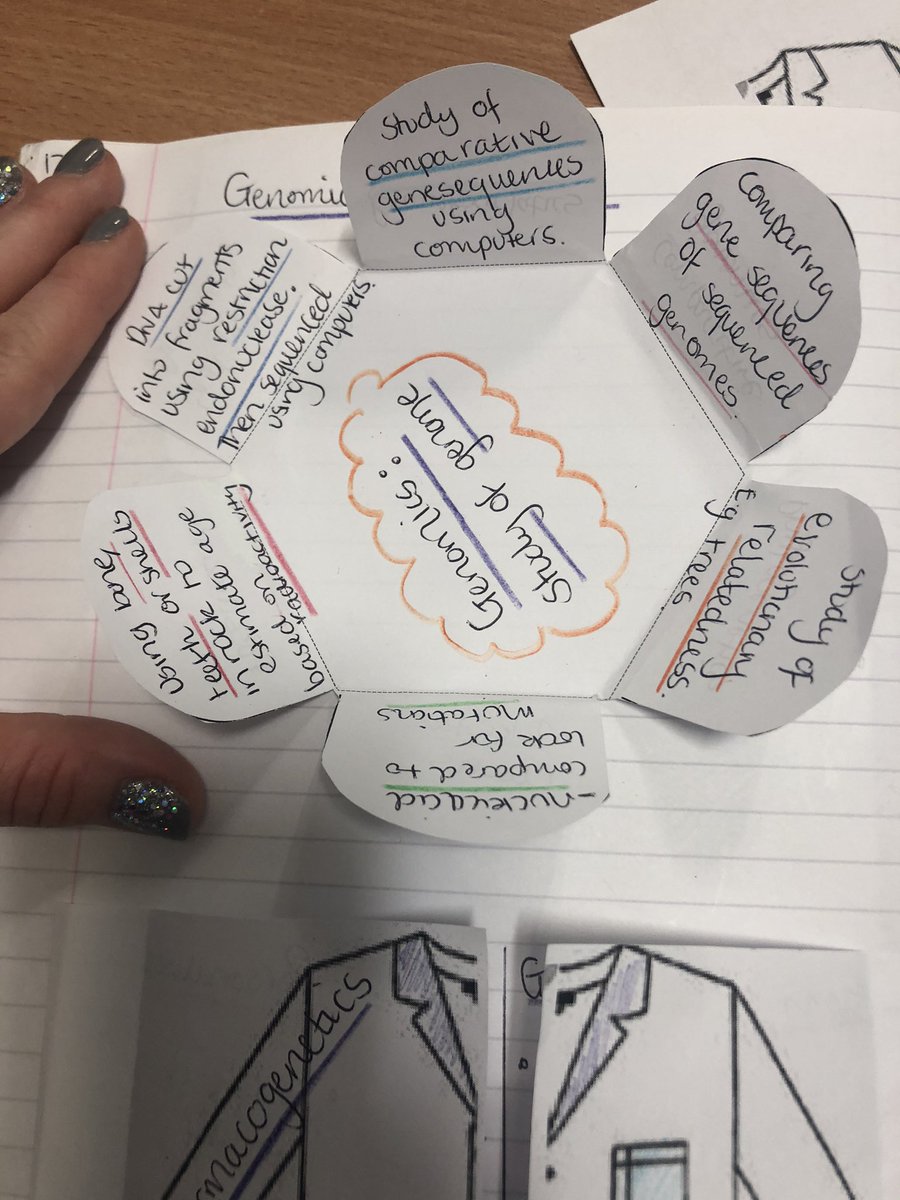 17
Genomic
Study of
comparative
genesequences
using
computers.
Comparing
gene sequences
of sequenced
genomes.
Study of
evolutionary
relatedness.
Eg trees
-nucleic acid
compared to
look for
mutations
Using bone,
teeth or shells
in rock to
estimate age
based on
radioactivity
DNA cut
into fragments
using restriction
endonuclease.
Then sequenced
using computers.
Genomics:
Study of genome
macogenetics
G